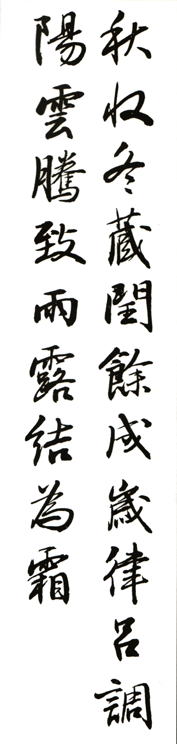 秋收冬蔵閏餘成嵗律呂調
陽雲騰致雨露結為霜